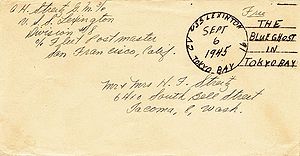 A.H. Streit, G.M.3c
U.S.S. Lexington
Division 5
c/o Fleet Postmaster
San Francisco, Calif.
CV USS LEXINTON
SEPT
6
1945
TOKYO BAY
Free
THE
BLUE GHOST
IN
TOKYO BAY
Mr & Mrs H. F. Streit
6410 South Bell Street
Tacoma, 8, Wash.